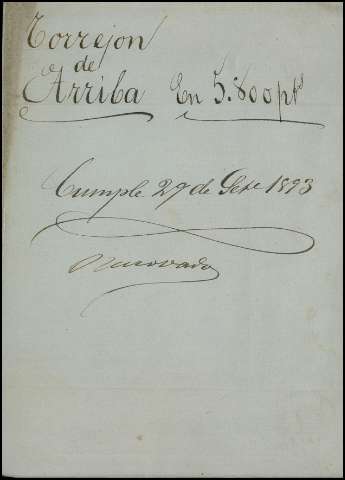 Torrejon
de
Arriba En 5.800 pts
Cumple 29 de Set.e 1893
Renovado